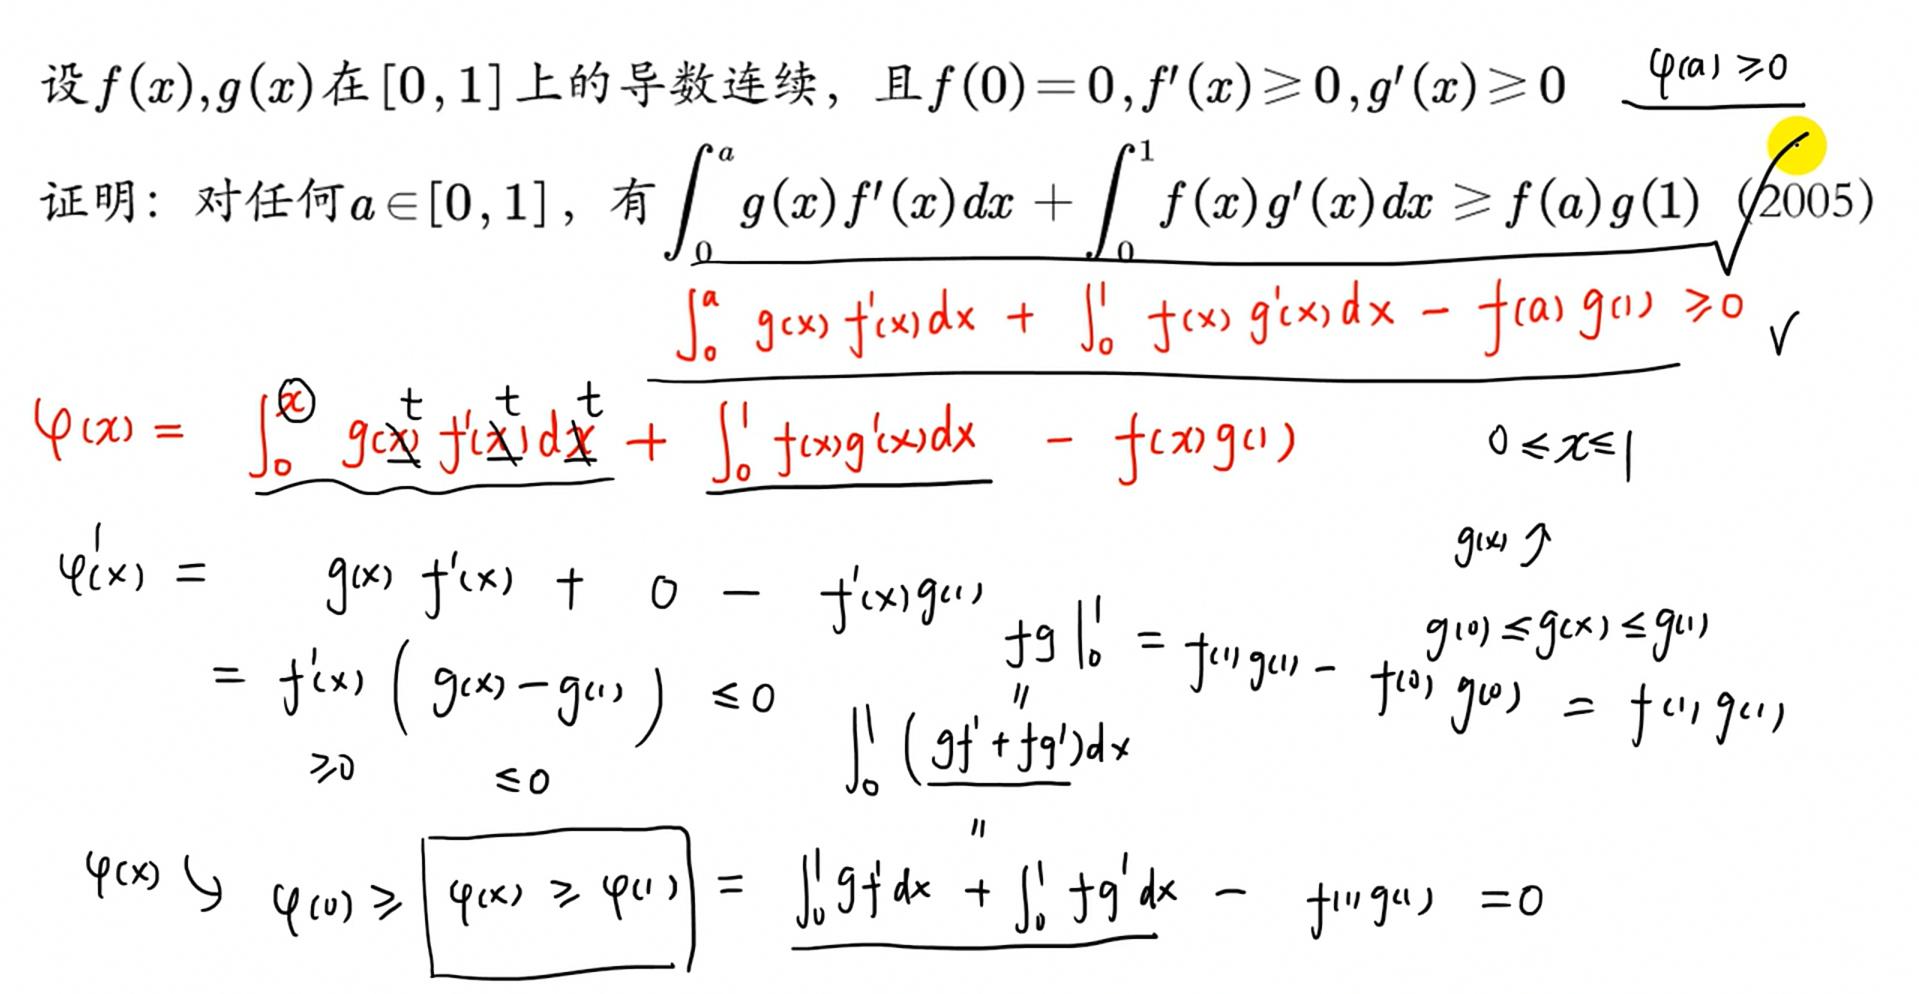 设f(x),g(x)在[0,1]上的导数连续，且f(0)=0,f'(x)⩾0,g'(x)⩾0 φ(a)≥0
证明：对任何a∈[0,1]，有∫₀ᵃ g(x)f'(x)dx+∫₀¹ f(x)g'(x)dx⩾f(a)g(1) (2005)
∫₀ᵃ g(x)f'(x)dx + ∫₀¹ f(x)g'(x)dx - f(a)g(1) ≥0 √
φ(x) = ∫₀ˣ g(x)f'(x)dx + ∫₀¹ f(x)g'(x)dx - f(x)g(1) 0≤x≤1
t t t
g(x)↗
φ'(x) = g(x)f'(x) + 0 - f'(x)g(1)
g(0)≤g(x)≤g(1)
= f'(x)(g(x)-g(1)) ≤0
fg|₀¹ = f(1)g(1) - f(0)g(0) = f(1)g(1)
≥0 ≤0
"
∫₀¹(gf'+fg')dx
"
φ(x)↘ φ(0)≥ φ(x)≥φ(1) = ∫₀¹gf'dx + ∫₀¹fg'dx - f(1)g(1) =0